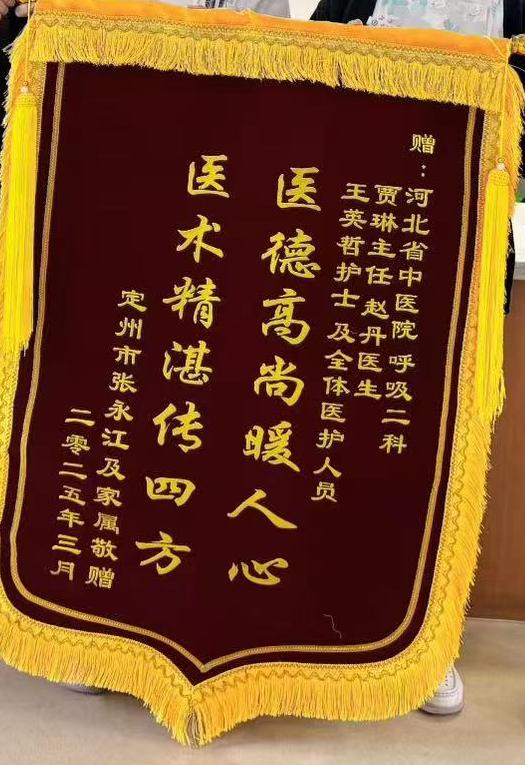 赠：河北省中医院呼吸二科
贾琳主任 赵丹医生
王英哲护士 及全体医护人员
医德高尚暖人心
医术精湛传四方
定州市张永江及家属敬赠
二零二五年三月